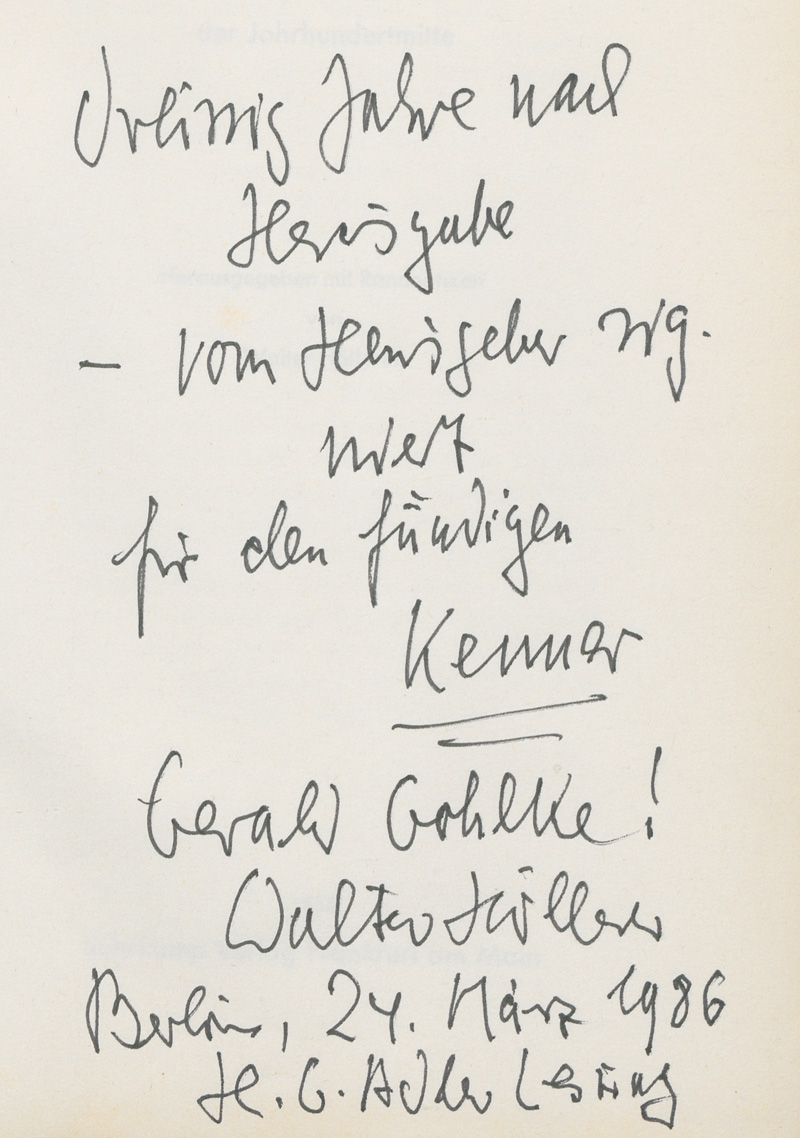 Dreissig Jahre nach
Herausgabe
– vom Herausgeber sig.
niert
für den fündigen
Kenner
Gerald Gohlke!
Walter Höllerer
Berlin, 24. März 1986
H. G. Adler Lesung